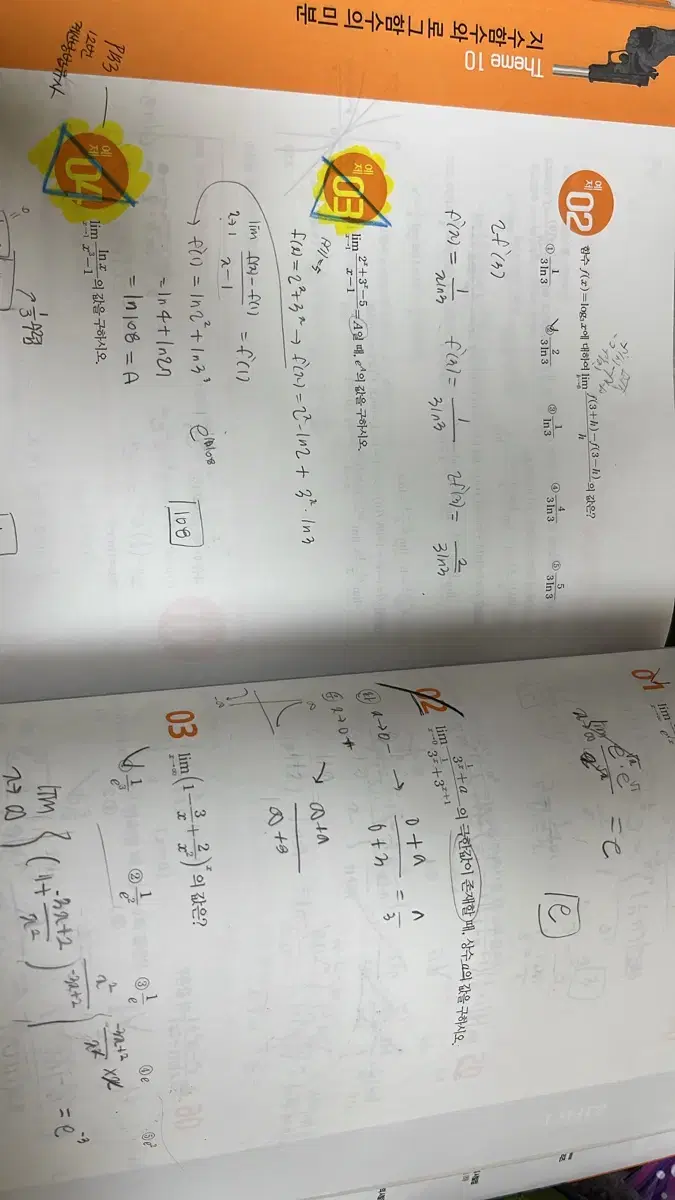 Theme 10
지수함수와 로그함수의 미분
예제 02 함수 f(x)=log₃x에 대하여 lim h→0 (f(3+h)-f(3-h))/h 의 값은?
① 1/(3ln3) ② 2/(3ln3) ③ 1/ln3 ④ 4/(3ln3) ⑤ 5/(3ln3)
2f'(3)
f'(x) = 1/(xln3) f'(3) = 1/(3ln3) 2f'(3) = 2/(3ln3)
예제 03 lim x→1 (2ˣ+3ˣ-5)/(x-1) = A일 때, eᴬ의 값을 구하시오.
f(1)=5
f(x)=2ˣ+3ˣ → f'(x)=2ˣ·ln2 + 3ˣ·ln3
lim x→1 (f(x)-f(1))/(x-1) = f'(1)
→ f'(1) = ln2² + ln3³
= ln4 + ln27
= ln108 = A
e^ln108
108
예제 04 lim x→1 lnx/(x³-1) 의 값을 구하시오.
01
= e
e
02 lim x→0 (3^(1/x)+a)/(3^(1/x)+3^(x+1)) 의 극한값이 존재할 때, 상수 a의 값을 구하시오.
x→0- → (0+a)/(0+3) = a/3
x→0+ → (∞+a)/(∞+3)
03 lim x→∞ (1-3/x+2/x²)ˣ의 값은?
① 1/e³ ② 1/e² ③ 1/e ④ e ⑤ e²
lim x→∞ {(1+(-3x+2)/x²)^(x²/(-3x+2))}^((-3x+2)/x² × x) = e⁻³